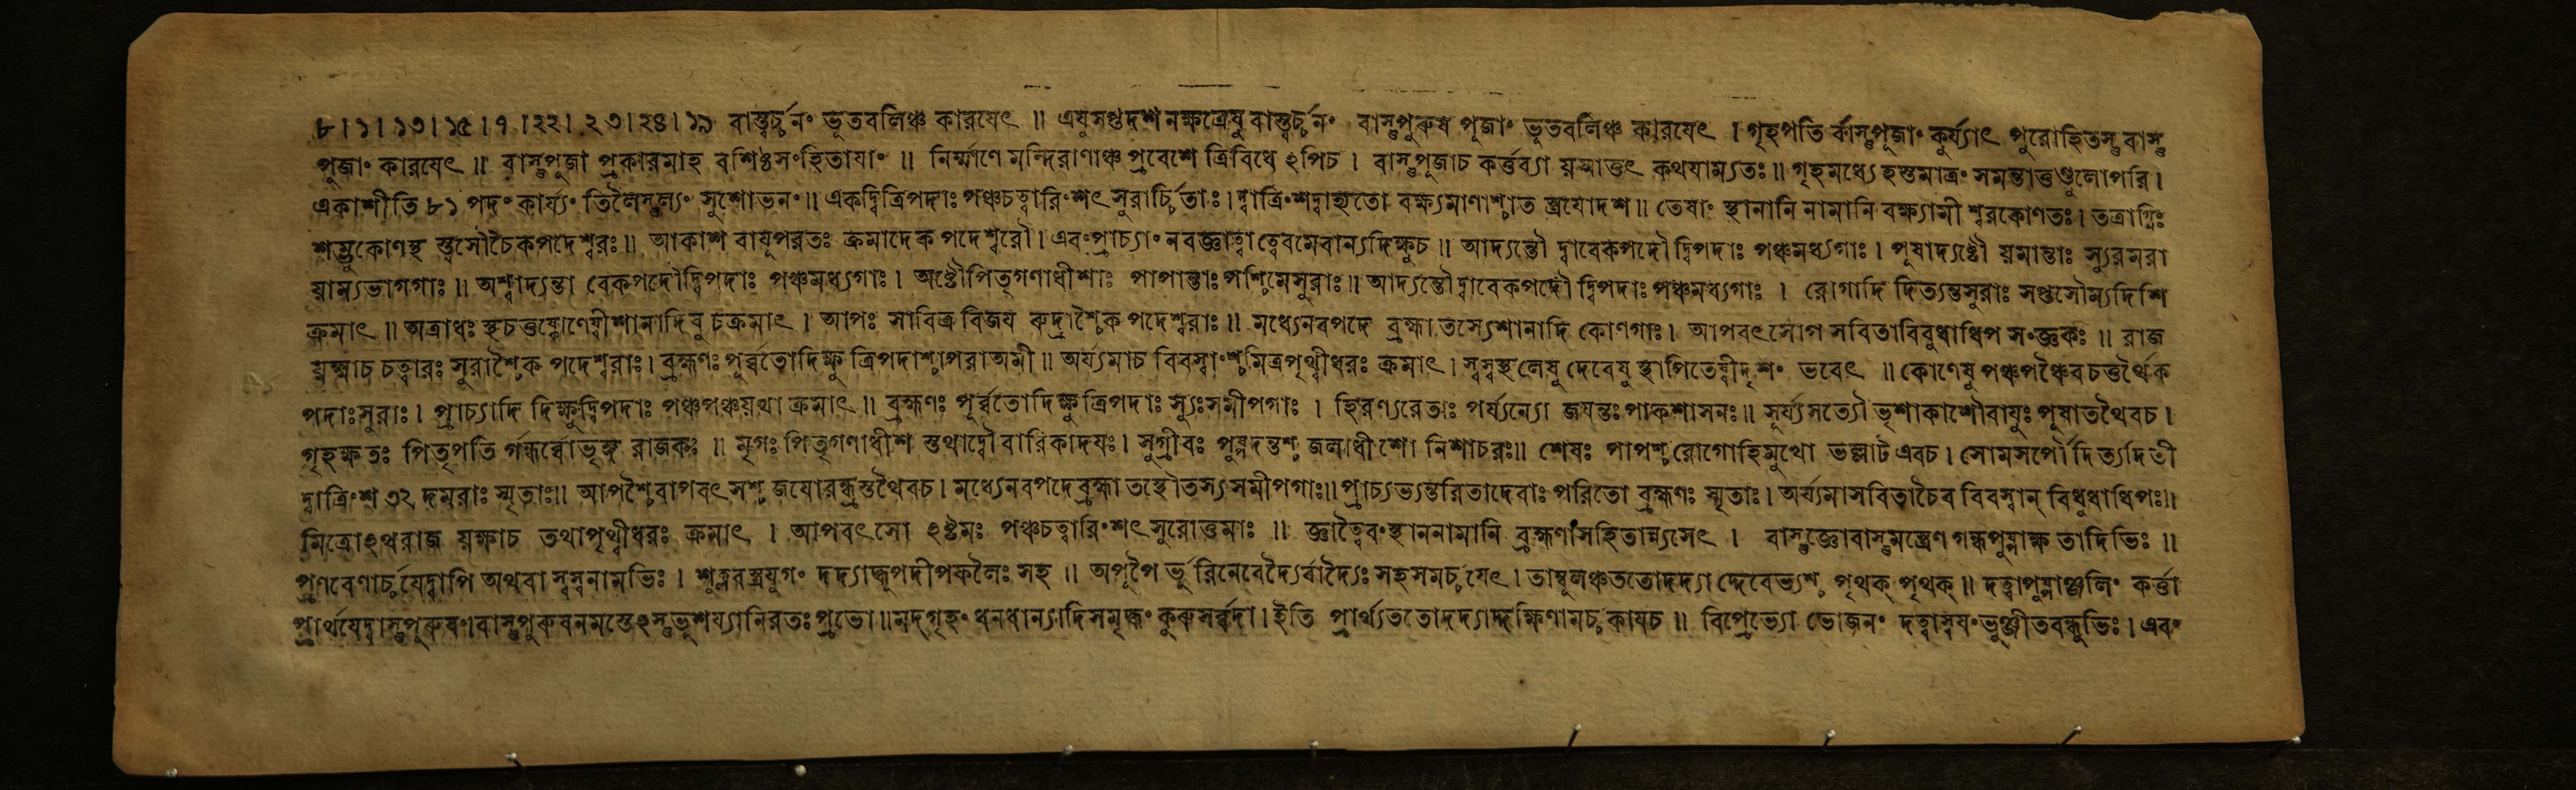 ৮।১।১৩।১৫।৭।২২।২৩।২৪।১৯ বাস্ত্বর্চ্চনং ভূতবলিঞ্চ কারযেৎ ॥ এষুসপ্তদশ নক্ষত্রেষু বাস্ত্বর্চ্চনং বাস্তুপুরুষ পূজাং ভূতবলিঞ্চ কারযেৎ । গৃহপতি র্বাস্তুপূজাং কুর্য্যাৎ পুরোহিতস্তু বাস্তু
পূজাং কারযেৎ ॥ বাস্তুপূজা প্রকারমাহ বশিষ্ঠসংহিতাযাং ॥ নির্ম্মাণে মন্দিরাণাঞ্চ প্রবেশে ত্রিবিধে ঽপিচ । বাস্তুপূজাচ কর্ত্তব্যা য়স্মাত্তৎ কথযাম্যতঃ ॥ গৃহমধ্যে হস্তমাত্রং সমন্তাত্তণ্ডুলোপরি ।
একাশীতি ৮১ পদং কার্য্যং তিলৈস্তুল্যং সুশোভনং ॥ একদ্বিত্রিপদাঃ পঞ্চচত্বারিংশৎ সুরার্চ্চিতাঃ । দ্বাত্রিংশদ্বাহ্যতো বক্ষ্যমাণাশ্চাত স্ত্রযোদশ ॥ তেষাং স্থানানি নামানি বক্ষ্যামী শ্বরকোণতঃ । তত্রাগ্নিঃ
শম্ভুকোণস্থ স্ত্বসৌচৈকপদেশ্বরঃ ॥ আকাশ বাযূপরতঃ ক্রমাদেক পদেশ্বরৌ । এবংপ্রাচ্যাং নবজ্ঞাত্বা ত্বেবমেবান্যদিক্ষুচ ॥ আদ্যন্তৌ দ্বাবেকপদৌ দ্বিপদাঃ পঞ্চমধ্যগাঃ । পূষাদ্যষ্টৌ য়মান্তাঃ স্যুরমরা
য়াম্যভাগগাঃ ॥ অশ্বাদ্যন্তা বেকপদৌদ্বিপদাঃ পঞ্চমধ্যগাঃ । অষ্টৌপিতৃগণাধীশাঃ পাপান্তাঃপশ্চিমেসুরাঃ ॥ আদ্যন্তৌদ্বাবেকপদৌ দ্বিপদাঃ পঞ্চমধ্যগাঃ । রোগাদি দিত্যন্তসুরাঃ সপ্তসৌম্যদিশি
ক্রমাৎ ॥ অত্রাধঃ স্থচতুষ্কোণেষ্বীশানাদিষু চক্রমাৎ । আপঃ সাবিত্র বিজয রুদ্রাশ্চৈক পদেশ্বরাঃ ॥ মধ্যেনবপদে ব্রহ্মা তস্যেশানাদি কোণগাঃ । আপবৎসোপ সবিতাবিবুধাধিপ সংজ্ঞকঃ ॥ রাজ
য়ক্ষ্মাচ চত্বারঃ সুরাশ্চৈক পদেশ্বরাঃ । ব্রহ্মণঃ পূর্ব্বতোদিক্ষু ত্রিপদাশ্চাপরাঅমী ॥ অর্য্যমাচ বিবস্বাংশ্চমিত্রপৃথ্বীধরঃ ক্রমাৎ । স্বস্বস্থলেষু দেবেষু স্থাপিতেষ্বীদৃশং ভবেৎ ॥ কোণেষু পঞ্চপঞ্চৈবচতুর্থৈক
পদাঃসুরাঃ । প্রাচ্যাদি দিক্ষুদ্বিপদাঃ পঞ্চপঞ্চয়থা ক্রমাৎ ॥ ব্রহ্মণঃ পূর্ব্বতোদিক্ষুত্রিপদাঃ স্যুঃসমীপগাঃ । হিরণ্যরেতাঃ পর্য্যন্যো জযন্তঃপাকশাসনঃ ॥ সূর্য্যসত্যৌ ভৃশাকাশৌবাযুঃ পূষাতথৈবচ ।
গৃহক্ষতঃ পিতৃপতি র্গন্ধর্ব্বোভৃঙ্গ রাজকঃ ॥ মৃগঃ পিতৃগণাধীশ স্তথাদ্বৌ বারিকাদযঃ । সুগ্রীবঃ পুষ্পদন্তশ্চ জলাধীশো নিশাচরঃ ॥ শেষঃ পাপশ্চরোগোহিমুখো ভল্লাট এবচ । সোমসর্পৌ দিত্যদিতী
দ্বাত্রিংশ ৩২ দমরাঃ স্মৃতাঃ ॥ আপশ্চৈবাপবৎ সশ্চ জযোরুদ্রস্তথৈবচ । মধ্যেনবপদেব্রহ্মা তস্থৌতস্যসমীপগাঃ ॥ প্রাচ্যভ্যন্তরিতাদেবাঃ পরিতো ব্রহ্মণঃ স্মৃতাঃ । অর্য্যমাসবিতাচৈব বিবস্বান্ বিবুধাধিপঃ ॥
মিত্রোঽথরাজ য়ক্ষ্মাচ তথাপৃথ্বীধরঃ ক্রমাৎ । আপবৎসো ঽষ্টমঃ পঞ্চচত্বারিংশৎ সুরোত্তমাঃ ॥ জ্ঞাত্বৈবংস্থাননামানি ব্রহ্মণাসহিতান্ন্যসেৎ । বাস্তুজ্ঞোবাস্তুমন্ত্রেণ গন্ধপুষ্পাক্ষ তাদিভিঃ ॥
প্রণবেণার্চ্চযেদ্বাপি অথবা স্বস্বনামভিঃ । শুক্লবস্ত্রযুগং দদ্যাদ্ধূপদীপফলৈঃ সহ ॥ অপূপৈ র্ভূরিনৈবেদ্যৈর্বাদ্যৈঃ সহসমর্চ্চযেৎ । তাম্বূলঞ্চততোদদ্যা দ্দেবেভ্যশ্চ পৃথক্ পৃথক্ ॥ দত্বাপুষ্পাঞ্জলিং কর্ত্তা
প্রার্থযেদ্বাস্তুপুরুষং । বাস্তুপুরুষনমস্তেঽস্তুভূশয্যানিরতঃপ্রভো ॥ মদ্গৃহং ধনধান্যাদিসমৃদ্ধং কুরুসর্ব্বদা । ইতি প্রার্থ্যততোদদ্যাদ্দক্ষিণামর্চ্চকাযচ ॥ বিপ্রেভ্যো ভোজনং দত্বাস্বযংভুঞ্জীতবন্ধুভিঃ । এবং